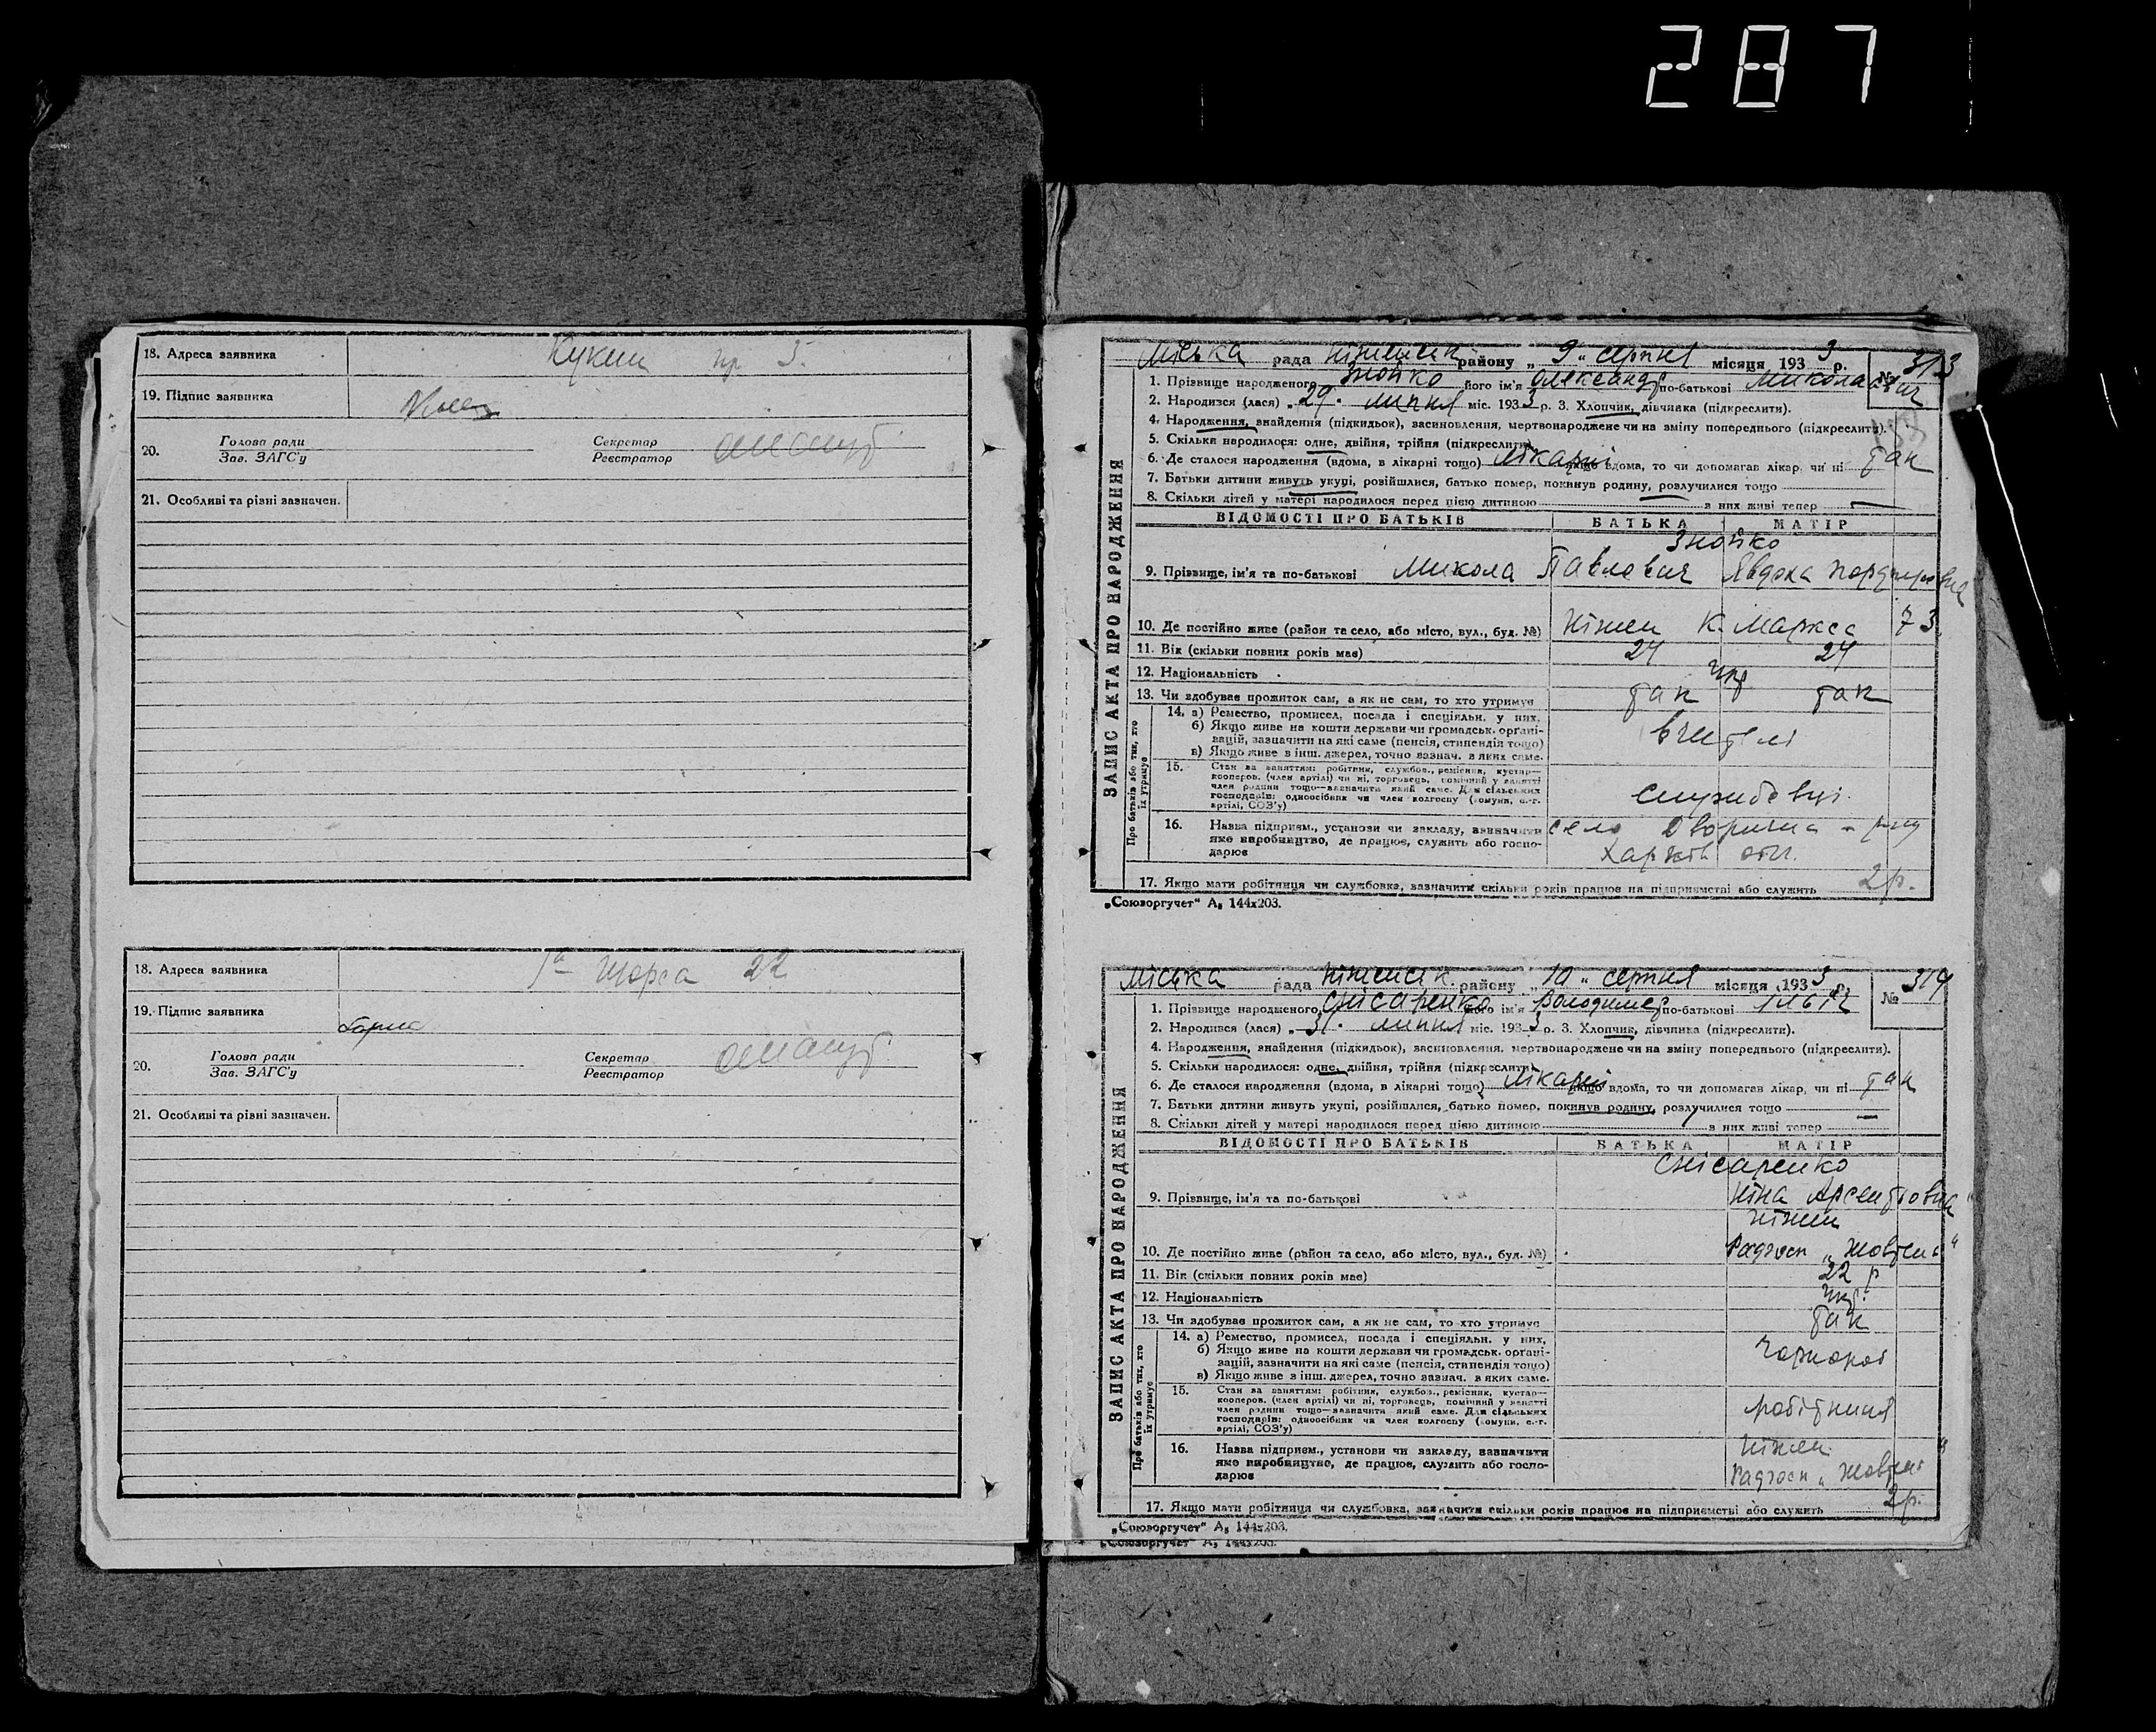 287
18. Адреса заявника Кукши пр 5.
19. Підпис заявника
20. Голова ради Зав. ЗАГС'у Секретар Реєстратор
21. Особливі та різні зазначен.
18. Адреса заявника Щорса 22
19. Підпис заявника
20. Голова ради Зав. ЗАГС'у Секретар Реєстратор
21. Особливі та різні зазначен.
ЗАПИС АКТА ПРО НАРОДЖЕННЯ
Міська рада Ніженськ району „9" серпня місяця 1933 р. № 313
1. Прізвище народженого Знойко його ім'я Олександр по-батькові Миколаєвич
2. Народився (лася) „29" липня міс. 1933 р. 3. Хлопчик, дівчинка (підкреслити).
4. Народження, знайдення (підкидьок), засиновлення, мертвонароджене чи на зміну попереднього (підкреслити).
5. Скільки народилося: одне, двійня, трійня (підкреслити)
6. Де сталося народження (вдома, в лікарні тощо) лікарні якщо вдома, то чи допомагав лікар, чи ні так
7. Батьки дитини живуть укупі, розійшлися, батько помер, покинув родину, розлучилися тощо
8. Скільки дітей у матері народилося перед цією дитиною з них живі тепер —
ВІДОМОСТІ ПРО БАТЬКІВ БАТЬКА МАТІР
Знойко
9. Прізвище, ім'я та по-батькові Микола Павлович Явдоха
10. Де постійно живе (район та село, або місто, вул., буд. №) Ніжен К. Маркса 73
11. Вік (скільки повних років має) 24 24
12. Національність укр
13. Чи здобуває прожиток сам, а як не сам, то хто утримує так так
Про батьків або тих, хто їх утримує
14. а) Ремество, промисел, посада і спеціяльн. у них.
б) Якщо живе на кошти держави чи громадськ. органі-
зацій, зазначити на які саме (пенсія, стипендія тощо) вчителі
в) Якщо живе з інш. джерел, точно зазнач. з яких саме.
15. Стан за заняттям: робітник, службов., ремісник, кустар—
кооперов. (член артілі) чи ні, торговець, помічний у занятті
член родини тощо—зазначити який саме. Для сільських
господарів: одноосібник чи член колгоспу (комуни, с.-г.
артілі, СОЗ'у) службовці
16. Назва підприєм., установи чи закладу, зазначити село Дворична
яке виробництво, де працює, служить або госпо- Харків обл.
дарює
17. Якщо мати робітниця чи службовка, зазначити скільки років працює на підприємстві або служить 2 р.
„Союзоргучет" А₅ 144х203.
ЗАПИС АКТА ПРО НАРОДЖЕННЯ
Міська рада Ніженськ. району „10" серпня місяця 1933 р. № 314
1. Прізвище народженого Снісаренко його ім'я Володимер по-батькові Ільїч
2. Народився (лася) „31" липня міс. 1933 р. 3. Хлопчик, дівчинка (підкреслити).
4. Народження, знайдення (підкидьок), засиновлення, мертвонароджене чи на зміну попереднього (підкреслити).
5. Скільки народилося: одне, двійня, трійня (підкреслити)
6. Де сталося народження (вдома, в лікарні тощо) лікарні якщо вдома, то чи допомагав лікар, чи ні так
7. Батьки дитини живуть укупі, розійшлися, батько помер, покинув родину, розлучилися тощо —
8. Скільки дітей у матері народилося перед цією дитиною з них живі тепер
ВІДОМОСТІ ПРО БАТЬКІВ БАТЬКА МАТІР
Снісаренко
9. Прізвище, ім'я та по-батькові Ніна Арсентіовна
Ніжен
10. Де постійно живе (район та село, або місто, вул., буд. №) Радгосп „Жовтень"
11. Вік (скільки повних років має) 22 р
12. Національність укр.
13. Чи здобуває прожиток сам, а як не сам, то хто утримує так
Про батьків або тих, хто їх утримує
14. а) Ремество, промисел, посада і спеціяльн. у них,
б) Якщо живе на кошти держави чи громадськ. органі- чорнороб
зацій, зазначити на які саме (пенсія, стипендія тощо)
в) Якщо живе з інш. джерел, точно зазнач. з яких саме.
15. Стан за заняттям: робітник, службов., ремісник, кустар—
кооперов. (член артілі) чи ні, торговець, помічний у занятті
член родини тощо—зазначити який саме. Для сільських
господарів: одноосібник чи член колгоспу (комуни, с.-г.
артілі, СОЗ'у) робітниця
16. Назва підприєм., установи чи закладу, зазначити Ніжен
яке виробництво, де працює, служить або госпо- Радгосп „Жовтень"
дарює
17. Якщо мати робітниця чи службовка, зазначити скільки років працює на підприємстві або служить 2 р.
„Союзоргучет" А₅ 144х203.
„Союзоргучет" А₅ 144х203.